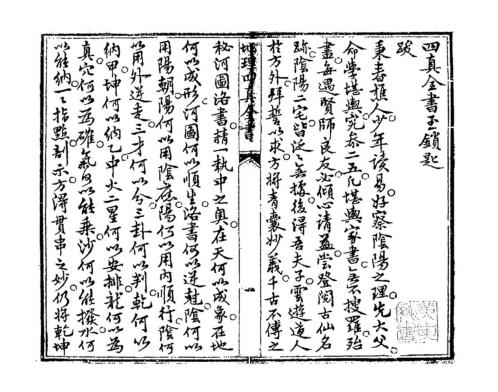 四真全書玉鎖匙
跋
秉者樵人少年讀易好察陰陽之理先大父
命學堪輿究參二五凡堪輿家書無不搜羅殆
盡每遇賢師良友必傾心請益嘗登閩古仙名
跡陰陽二宅皆泛泛無據後得吾夫子雲遊道人
於方外拜誓以求方將青囊妙義千古不傳之
地理四真全書
秘河圖洛書精一執中之奧在天何以成象在地
何以成形河圖何以順生洛書何以逆尅陰何以
用陽朝陽何以用陰應陽何以用內順行陰何
以用外逆走三才何以分三卦何以判乾何以
納甲坤何以納乙中火二星何以安排龍何以為
真穴何以為確氣何以能乘沙何以能撥水何
以能納一一指點剖示方得貫串之妙仍將乾坤